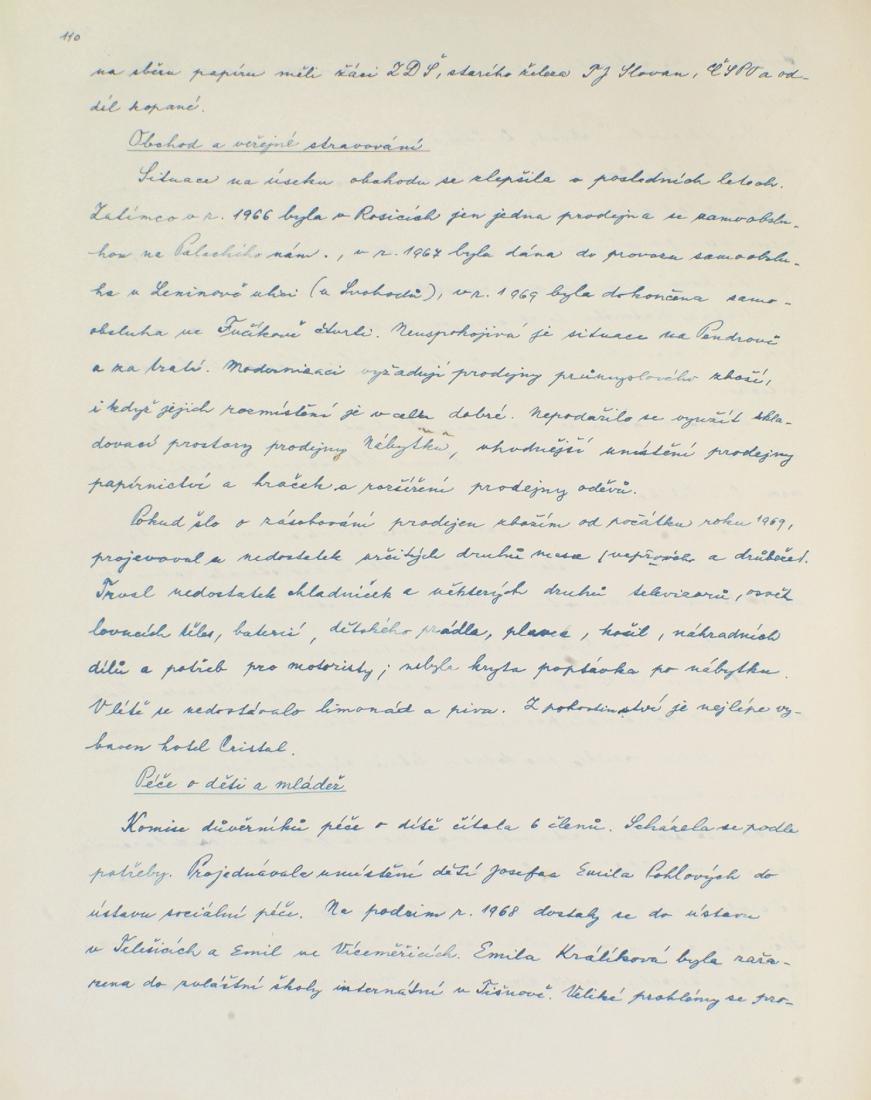 110
na sběru papíru měli žáci ZDŠ, starého železa TJ Slovan, ČSPO a od-
díl kopané.
Obchod a veřejné stravování
Situace na úseku obchodu se zlepšila v posledních letech.
Zatímco v r. 1966 byla v Rosicích jen jedna prodejna se samoobslu-
hou na Palackého nám., v r. 1967 byla dána do provozu samoobslu-
ha v Leninově ulici (u Svobodů), v r. 1969 byla dokončena samo-
obsluha ve Fučíkově čtvrti. Neuspokojivá je situace na Pendrově
a za tratí. Modernizaci vyžadují prodejny průmyslového zboží,
i když jejich rozmístění je v celku dobré. Nepodařilo se využít skla-
dovací prostory prodejny Nábytku, vhodnější umístění prodejny
papírnictví a hraček a rozšíření prodejny oděvů.
Pokud šlo o zásobování prodejen zbožím od počátku roku 1969,
projevoval se nedostatek určitých druhů masa (vepřového a drůbeže).
Trval nedostatek chladniček a některých druhů televizorů, osvět
lovacích těles, baterií, dětského prádla, plavek, košil, náhradních
dílů a potřeb pro motoristy; nebyla kryta poptávka po nábytku.
V létě se nedostávalo limonád a piva. Z pohostinství je nejlépe vy-
baven hotel Cristal.
Péče o děti a mládež
Komise důvěrníků péče o dítě čítala 6 členů. Scházela se podle
potřeby. Projednávala umístění dětí Josefa a Emila Pohlových do
ústavu sociální péče. Na podzim r. 1968 dostaly se do ústavu
v Telešicích a Emil ve Víceměřicích. Emila Králíková byla zařa-
zena do zvláštní školy internátní v Tišnově. Veliké problémy se pro-